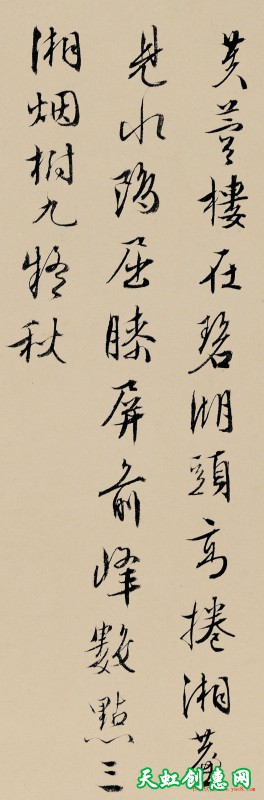 芙樓在碧湖頭高捲湘簾
見水鷗屈膝屏前峰數點三
湘烟樹九疑秋
天虹创意网